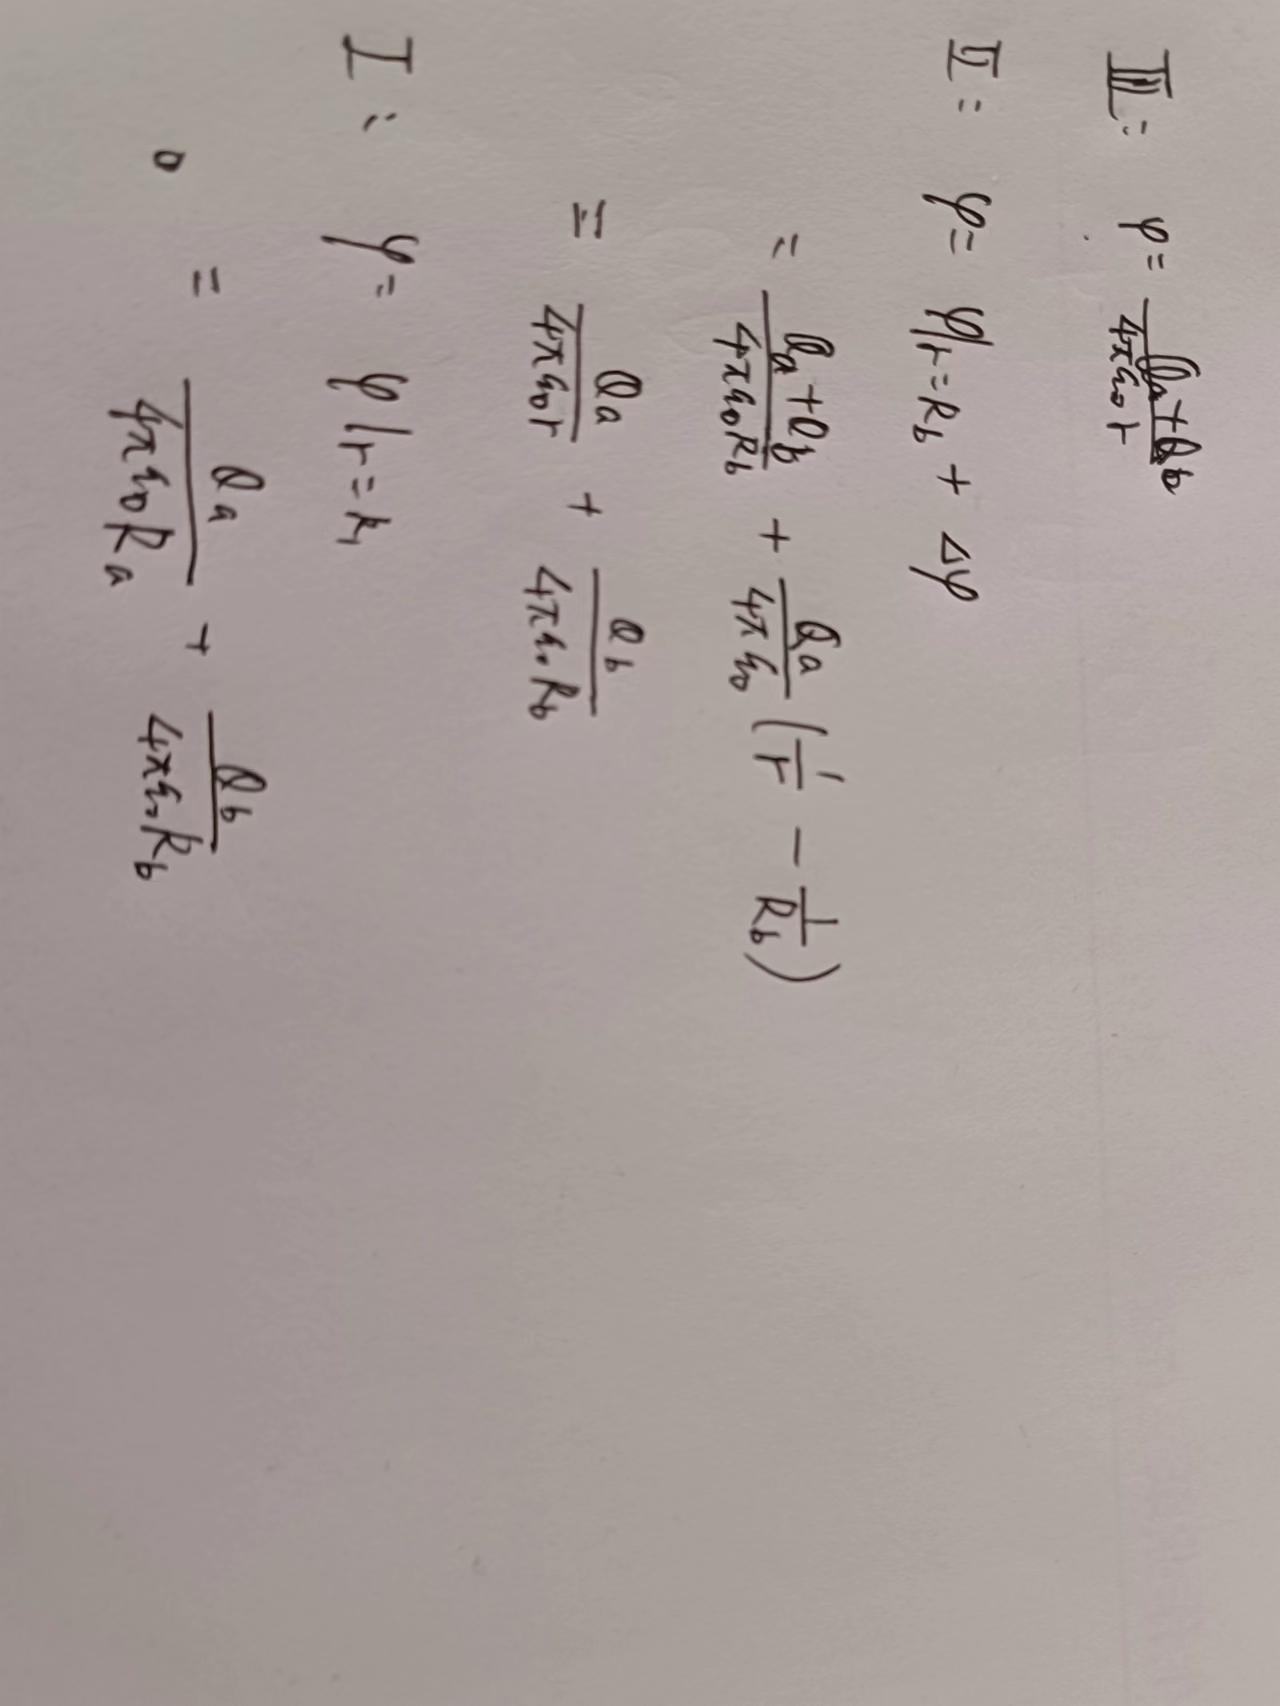 III: φ = (Qa+Qb)/(4πε₀r)
II: φ = φ|r=Rb + Δφ
= (Qa+Qb)/(4πε₀Rb) + Qa/(4πε₀) (1/r - 1/Rb)
= Qa/(4πε₀r) + Qb/(4πε₀Rb)
I: φ = φ|r=R₁
= Qa/(4πε₀Ra) + Qb/(4πε₀Rb)